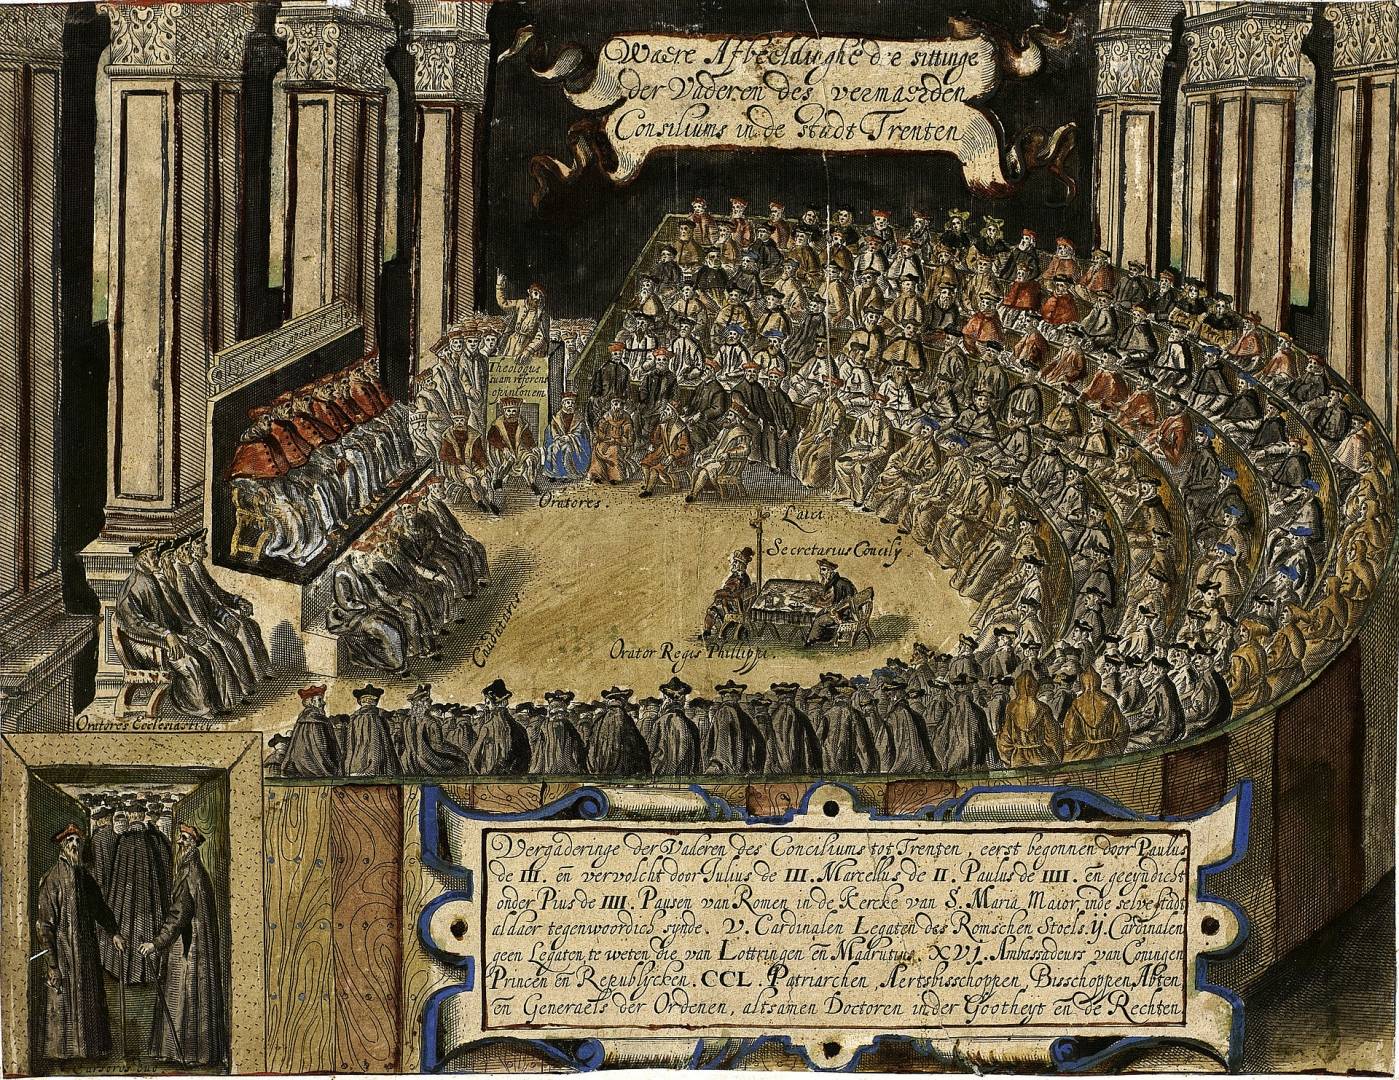 Waere Afbeeldinghe d'e sittinge
der Vaderen des vermaerden
Consiliums in de stadt Trenten
Theologus
suam referens
opinionem
Oratores.
Laici.
Secretarius Concily.
Caudatarii.
Orator Regis Philippi.
Oratores Ecclesiastiy.
Vergaderinge der Vaderen des Conciliums tot Trenten, eerst begonnen door Paulus
de III. en vervolcht door Julius de III. Marcellus de II. Paulus de IIII. en geeyndicht
onder Pius de IIII. Pausen van Romen in de Kercke van S. Maria Maior, inde selve stadt
aldaer tegenwoordich synde. V. Cardinalen Legaten des Romschen Stoels. ij. Cardinalen
geen Legaten, te weten die van Lottringen en Madrutius. XVJ. Ambassadeurs van Coningen
Princen en Republycken. CCL. Patriarchen, Aertsbisschoppen, Bisschoppen, Abten,
en Generaels der Ordenen, altsamen Doctoren inder Gootheyt en de Rechten.
Cursores duo